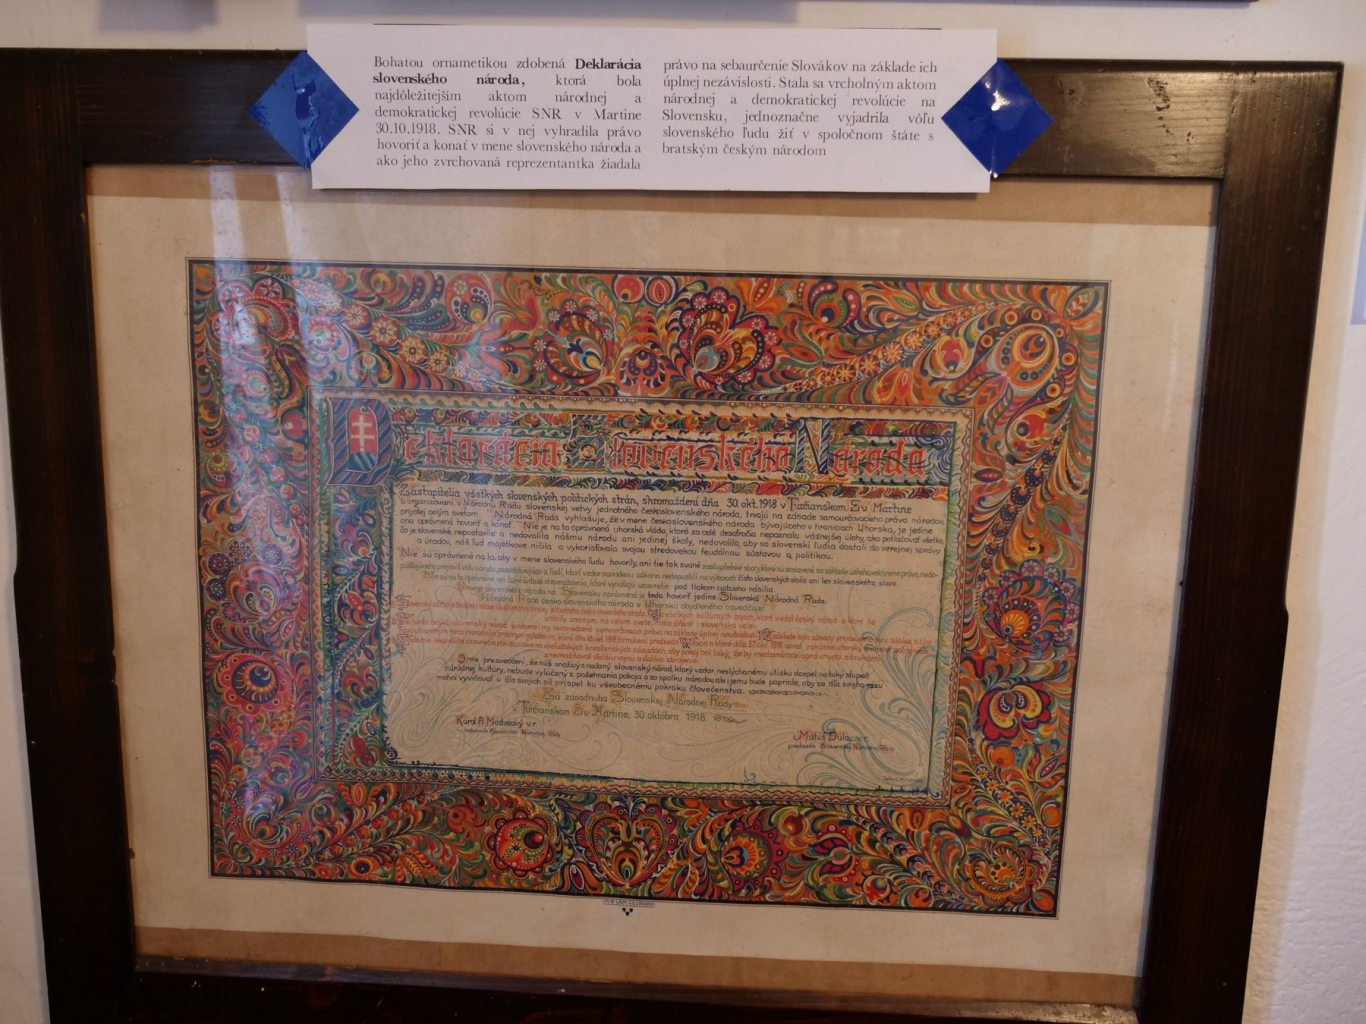 Bohatou ornametikou zdobená Deklarácia
slovenského národa, ktorá bola
najdôležitejším aktom národnej a
demokratickej revolúcie SNR v Martine
30.10.1918. SNR si v nej vyhradila právo
hovoriť a konať v mene slovenského národa a
ako jeho zvrchovaná reprezentantka žiadala
právo na sebaurčenie Slovákov na základe ich
úplnej nezávislosti. Stala sa vrcholným aktom
národnej a demokratickej revolúcie na
Slovensku, jednoznačne vyjadrila vôľu
slovenského ľudu žiť v spoločnom štáte s
bratským českým národom
Deklarácia Slovenského Národa
Zástupitelia všetkých slovenských politických strán, shromaždení dňa 30. okt. 1918 v Turčianskom Sv. Martine
a organizovaní v Národnú Radu slovenskej vetvy jednotného československého národa, trvajú na zásade samourčovacieho práva národov,
prijatej celým svetom. Národná Rada vyhlašuje, že v mene československého národa bývajúceho v hraniciach Uhorska, je jedine
ona oprávnená hovoriť a konať. Nie je na to oprávnená uhorská vláda, ktorá za celé desaťročia nepoznala vážnejšej úlohy, ako potlačovať všetko,
čo je slovenské, nepostavila a nedovolila nášmu národu ani jedinej školy, nedovolila, aby sa slovenskí ľudia dostali do verejnej správy
a úradov, náš ľud majetkove ničila a vykorisťovala svojou stredovekou feudálnou sústavou a politikou.
Nie sú oprávnené na to, aby v mene slovenského ľudu hovorily, ani tie tak zvané zastupiteľské sbory, ktoré sú sostavené na základe úzkeho volebného práva, nedo-
čisto slovenských stolíc ani len slovenského slova.
Nie sú na to oprávnené ani také ľudové shromaždenia, ktoré vynášajú uzavretie pod tlakom cudzieho násilia.
V mene slovenského národa na Slovensku oprávnená je teda hovoriť jedine Slovenská Národná Rada.
Národná Rada česko-slovenského národa v Uhorsku obydleného osvedčuje:
Sme presvedčení, že náš snaživý a nadaný slovenský národ, ktorý vzdor neslýchanému útisku dospel na taký stupeň
národnej kultúry, nebude vylúčený z požehnania pokoja a zo spolku národov, ale i jemu bude popriate, aby sa dľa svojho rázu
mohol vyvinovať a dľa svojich síl prispel ku všeobecnému pokroku človečenstva.
Zo zasadnutia Slovenskej Národnej Rady
v Turčianskom Sv. Martine, 30 októbra 1918.
Karol A. Medvecký v.r.
Matúš Dula v.r.
predseda Slovenskej Národnej Rady